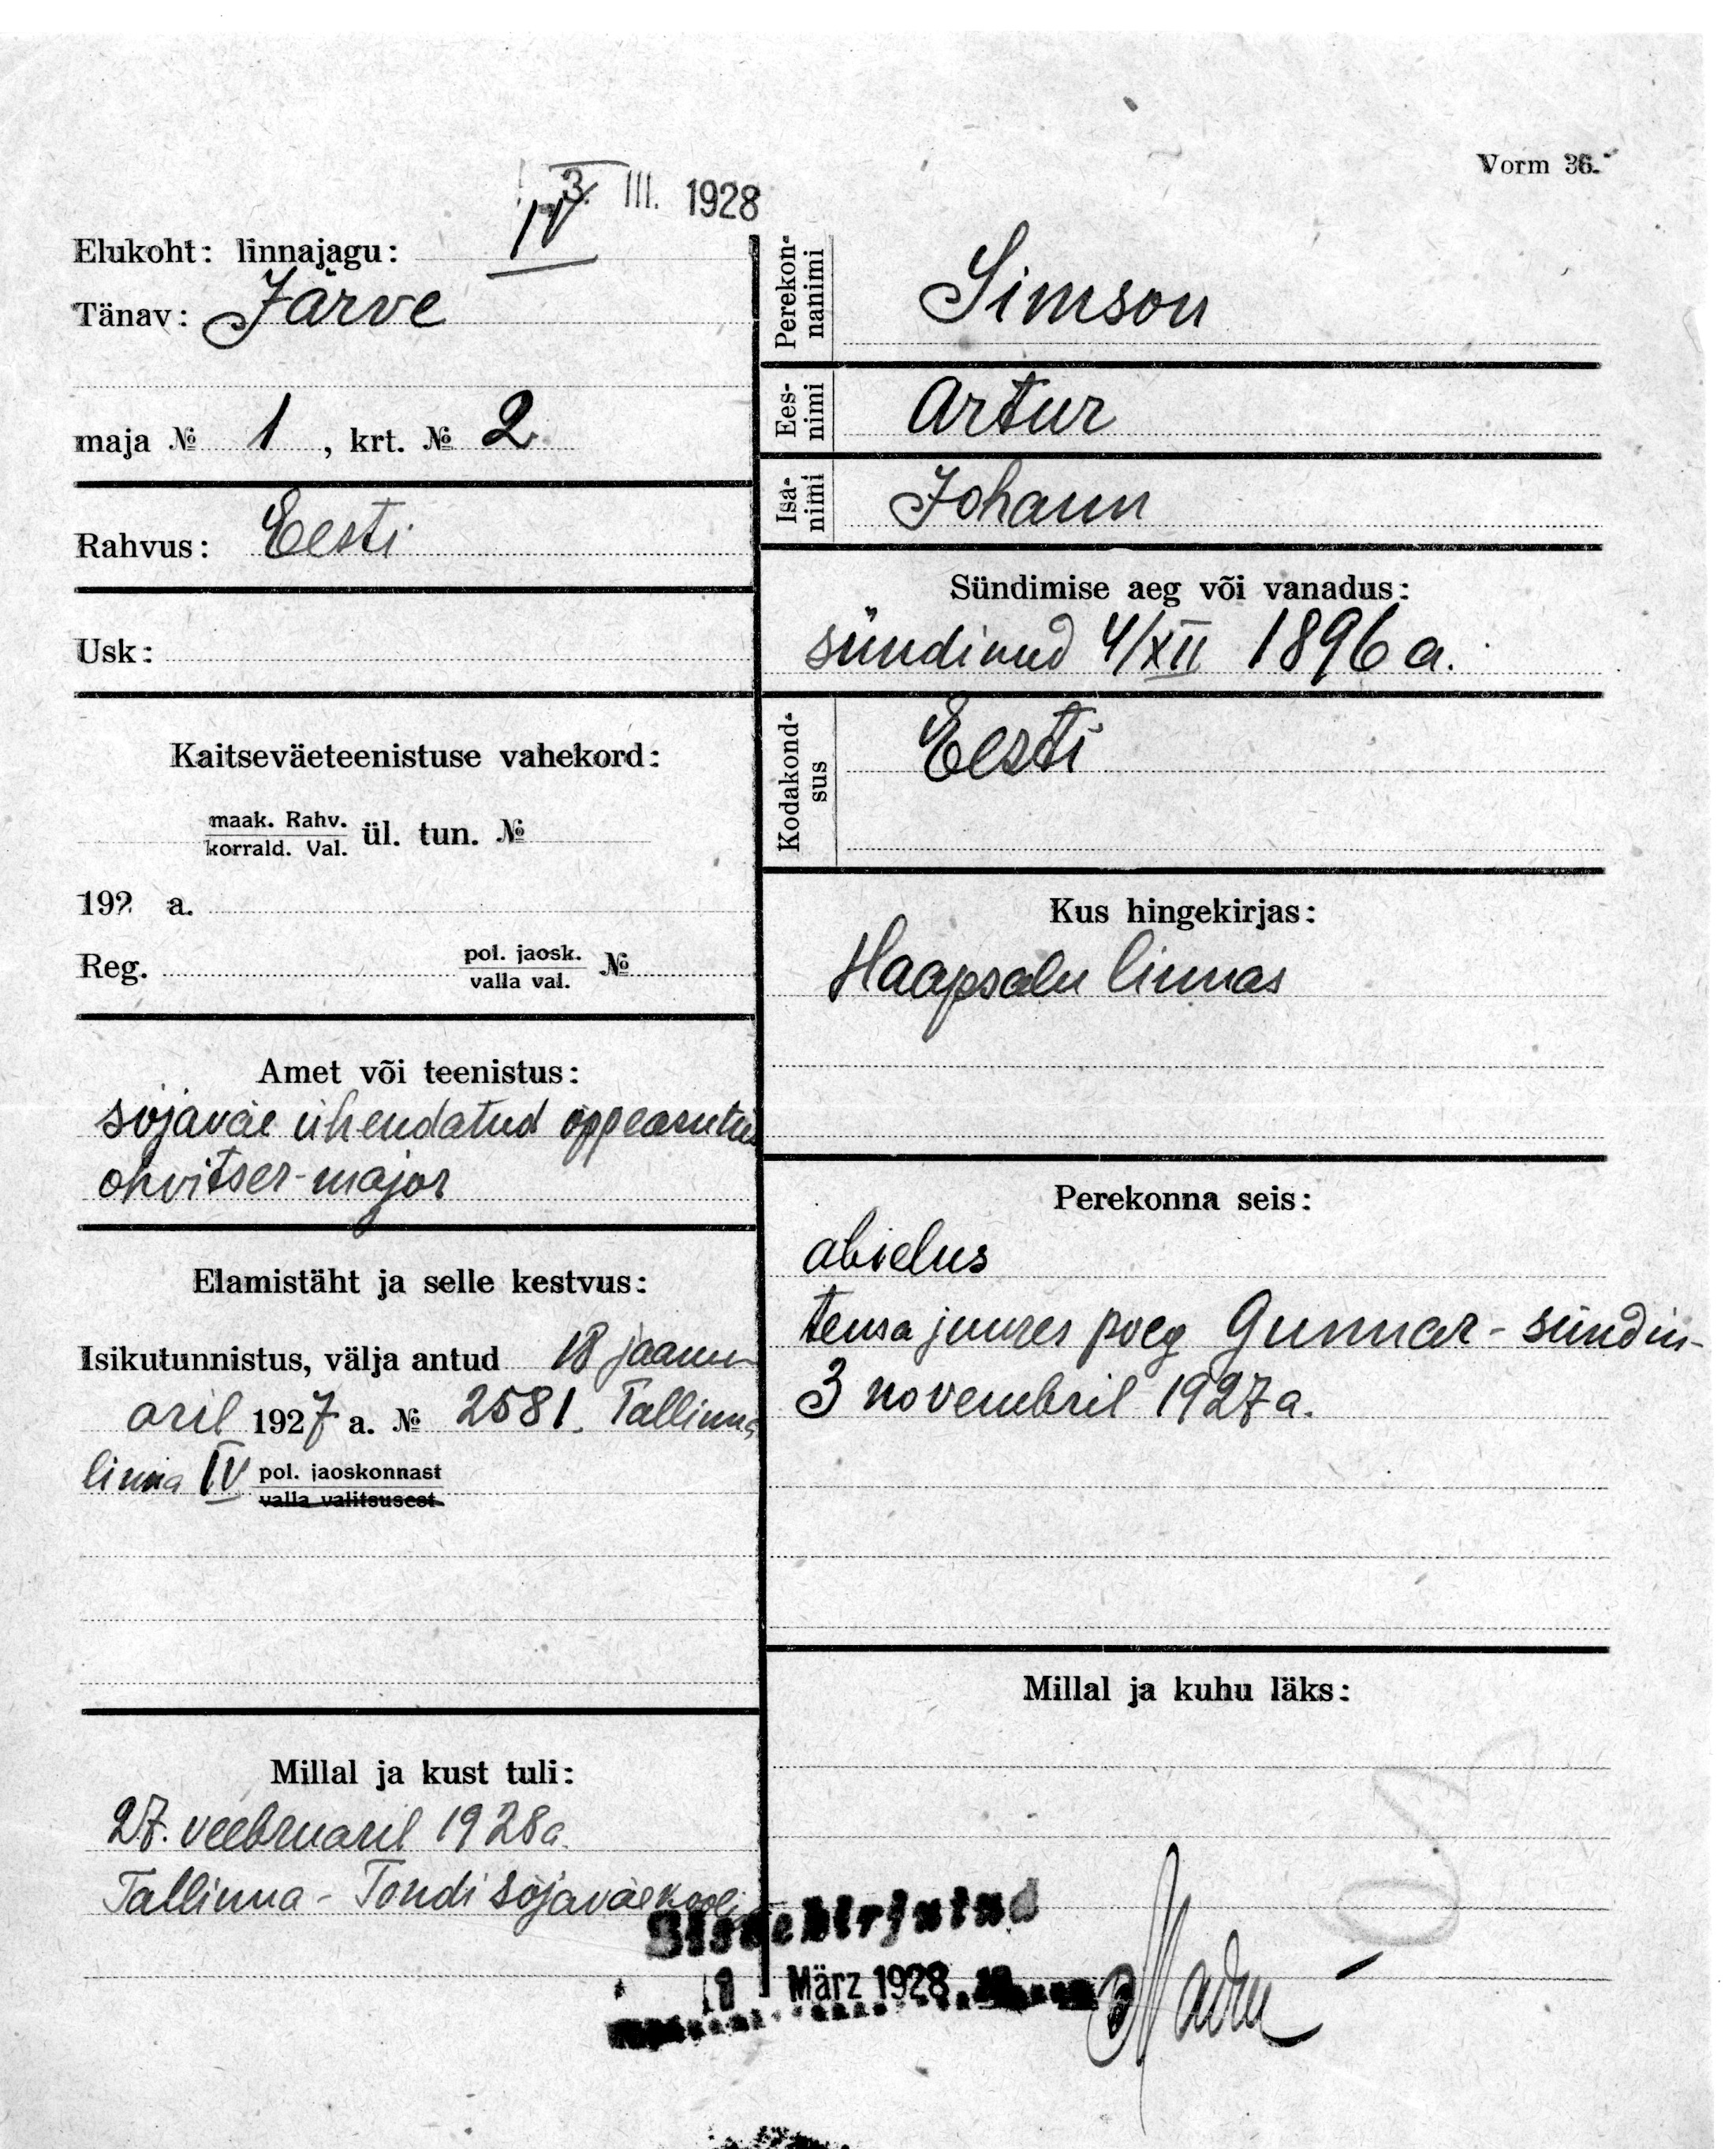 Vorm 36.
3. III. 1928
Elukoht: linnajagu: IV
Tänav: Järve
maja № 1, krt. № 2
Rahvus: Eesti
Usk:
Kaitseväeteenistuse vahekord:
maak. Rahv.
korrald. Val. ül. tun. №
192 a.
Reg. pol. jaosk.
valla val. №
Amet või teenistus:
sõjaväe ühendatud õppeasutus
ohvitser-major
Elamistäht ja selle kestvus:
Isikutunnistus, välja antud 18 jaanu-
aril 1927 a. № 2581. Tallinna
linna IV pol. jaoskonnast
valla valitsusest
Millal ja kust tuli:
27. veebruaril 1928 a.
Tallinna - Tondi sõjaväekooli
Perekon-
nanimi Simson
Ees-
nimi Artur
Isa-
nimi Johann
Sündimise aeg või vanadus:
sündinud 4/XII 1896 a.
Kodakond-
sus Eesti
Kus hingekirjas:
Haapsalu linnas
Perekonna seis:
abielus
tema juures poeg Gunnar - sündin-
3 novembril 1927 a.
Millal ja kuhu läks:
Sissekirjutud
1 März 1928